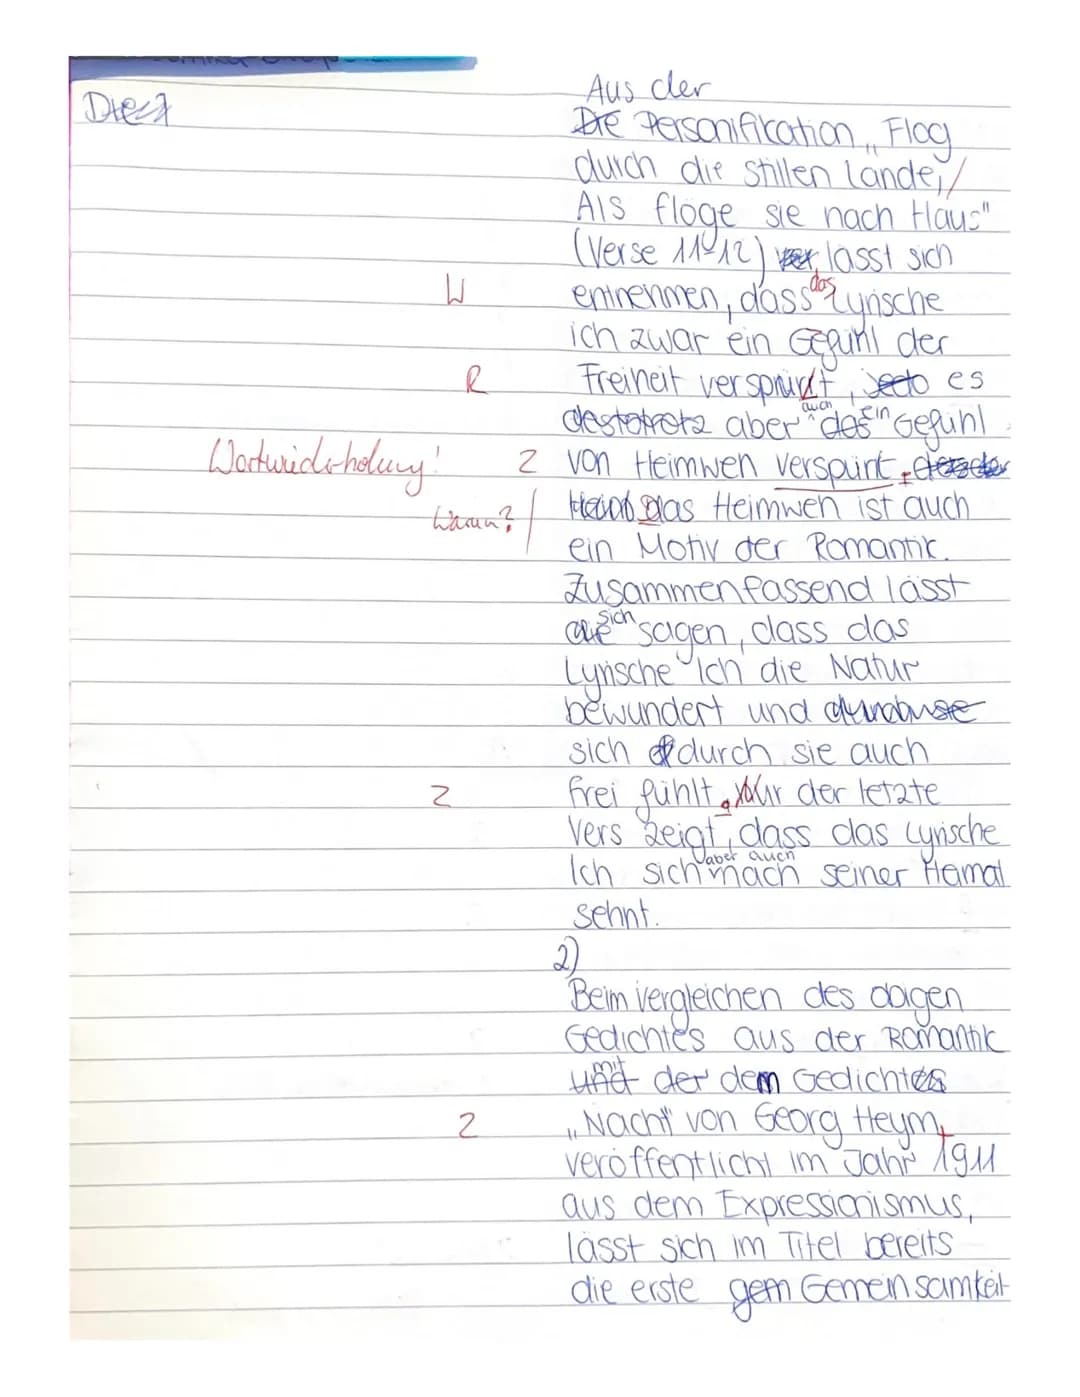 Aus der
Die Personifikation „Flog
durch die stillen Lande, /
Als flöge sie nach Haus"
(Verse 11-12) lässt sich
W entnehmen, dass das Lyrische
ich zwar ein Gefühl der
R Freiheit verspürt, jedo es
destotrotz aber auch das ein Gefühl
Wortwiederholung! Z von Heimweh verspürt,
Warum? / das Heimweh ist auch
ein Motiv der Romantik.
Zusammenfassend lässt
sich sagen, dass das
Lyrische Ich die Natur
bewundert und
sich durch sie auch
Z frei fühlt, Nur der letzte
Vers zeigt, dass das Lyrische
Ich sich aber auch nach seiner Heimat
sehnt.
2)
Beim vergleichen des obigen
Gedichtes aus der Romantik
und mit der dem Gedichtes
Z „Nacht" von Georg Heym,
veröffentlicht im Jahr 1911
aus dem Expressionismus,
lässt sich im Titel bereits
die erste gem Gemeinsamkeit